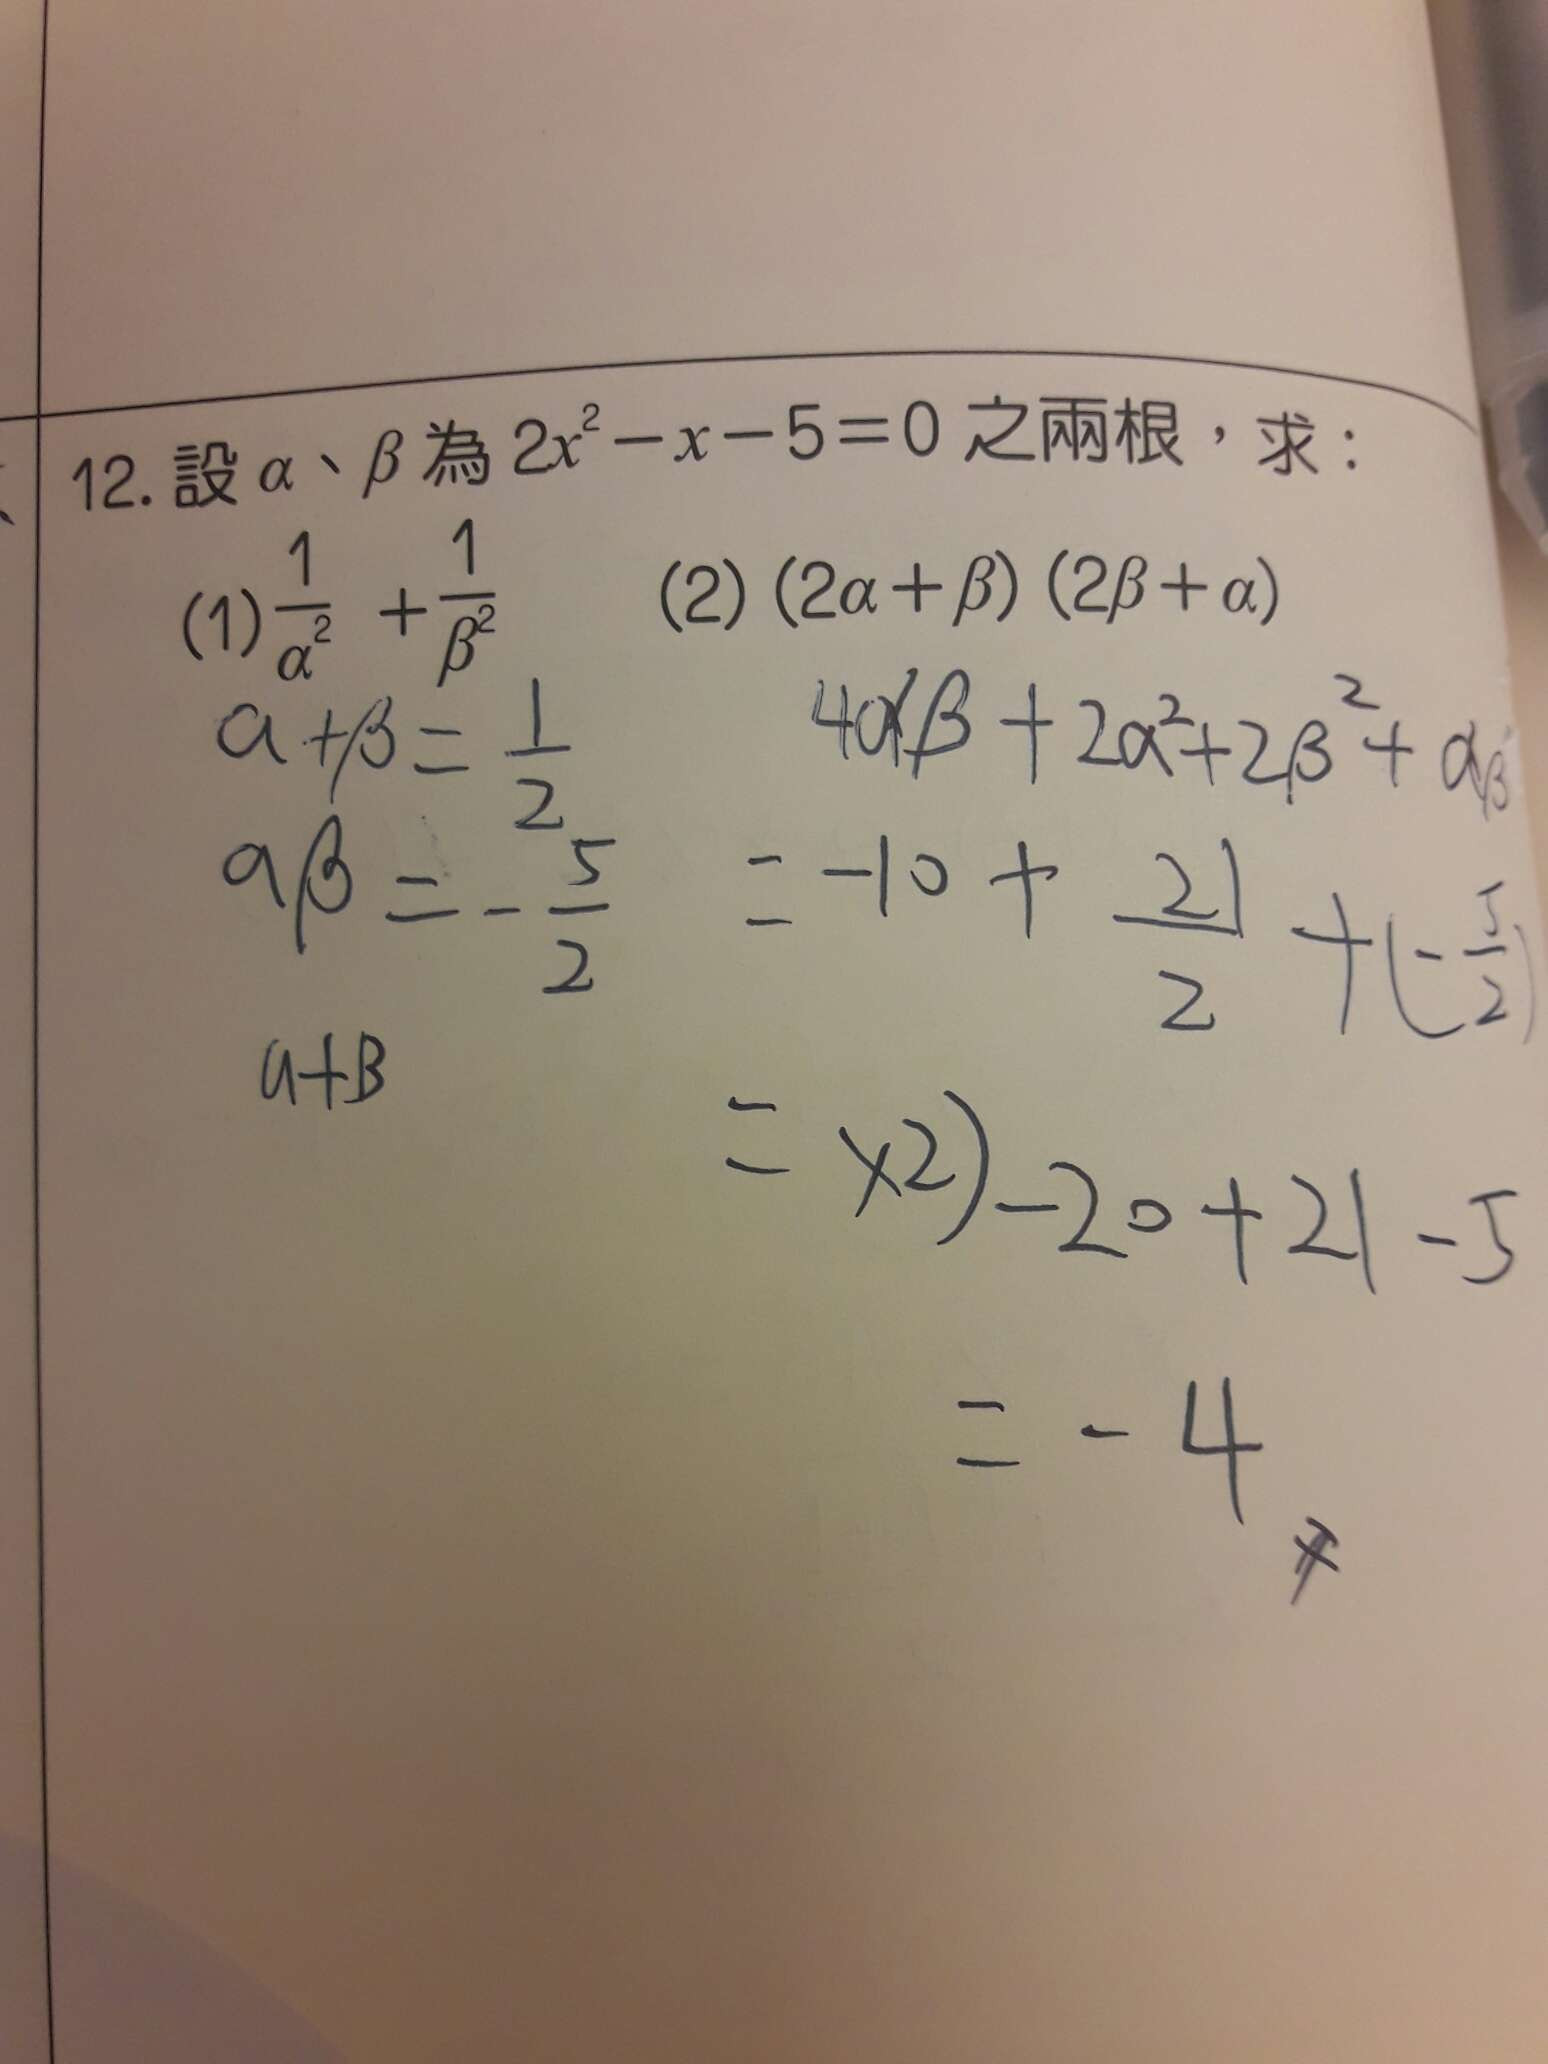 12. 設 α、β 為 2x²－x－5＝0 之兩根，求：
(1) 1/α² + 1/β² (2) (2α＋β) (2β＋α)
α+β = 1/2
αβ = - 5/2
α+β
4αβ + 2α²+2β²+ αβ
= -10 + 21/2 + (-5/2)
= ×2) -20 + 21 - 5
= - 4